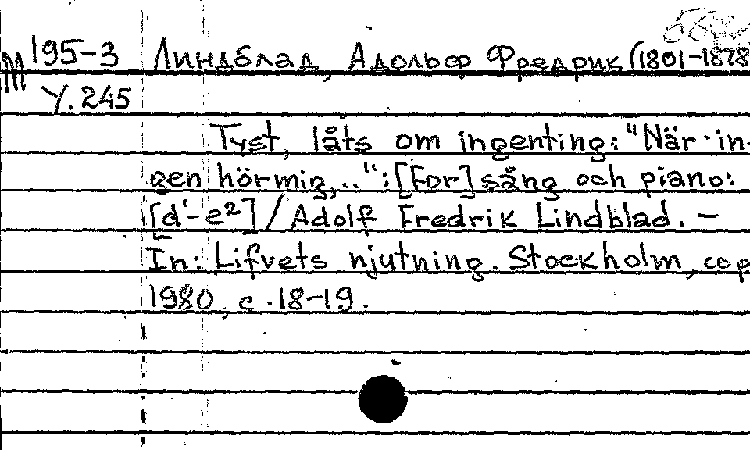 М 195-3 Линдблад, Адольф Фредрик (1801-1878
Y.245
Tyst, låts om ingenting: "När in-
gen hör mig,..": [For] sång och piano:
[d¹-e²] / Adolf Fredrik Lindblad. –
In: Lifvets njutning. Stockholm, cop
1980, c. 18-19.